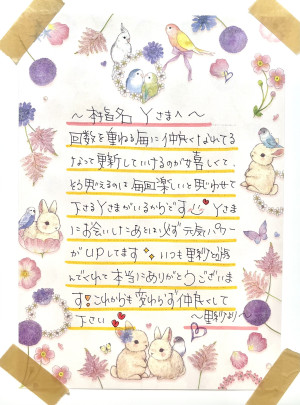 ～本指名 Yさまへ～
回数を重ねる毎に仲良くなれてる
なって更新していけるのが嬉しくて、
そう思えるのは毎回楽しいと思わせて
下さるYさまがいるからです Yさま
にお会いしたあとは必ず元気パワー
がUPしてます いつも里紗と遊
んでくれて本当にありがとうございま
す!これからも変わらず仲良くして
下さい ～里紗より～